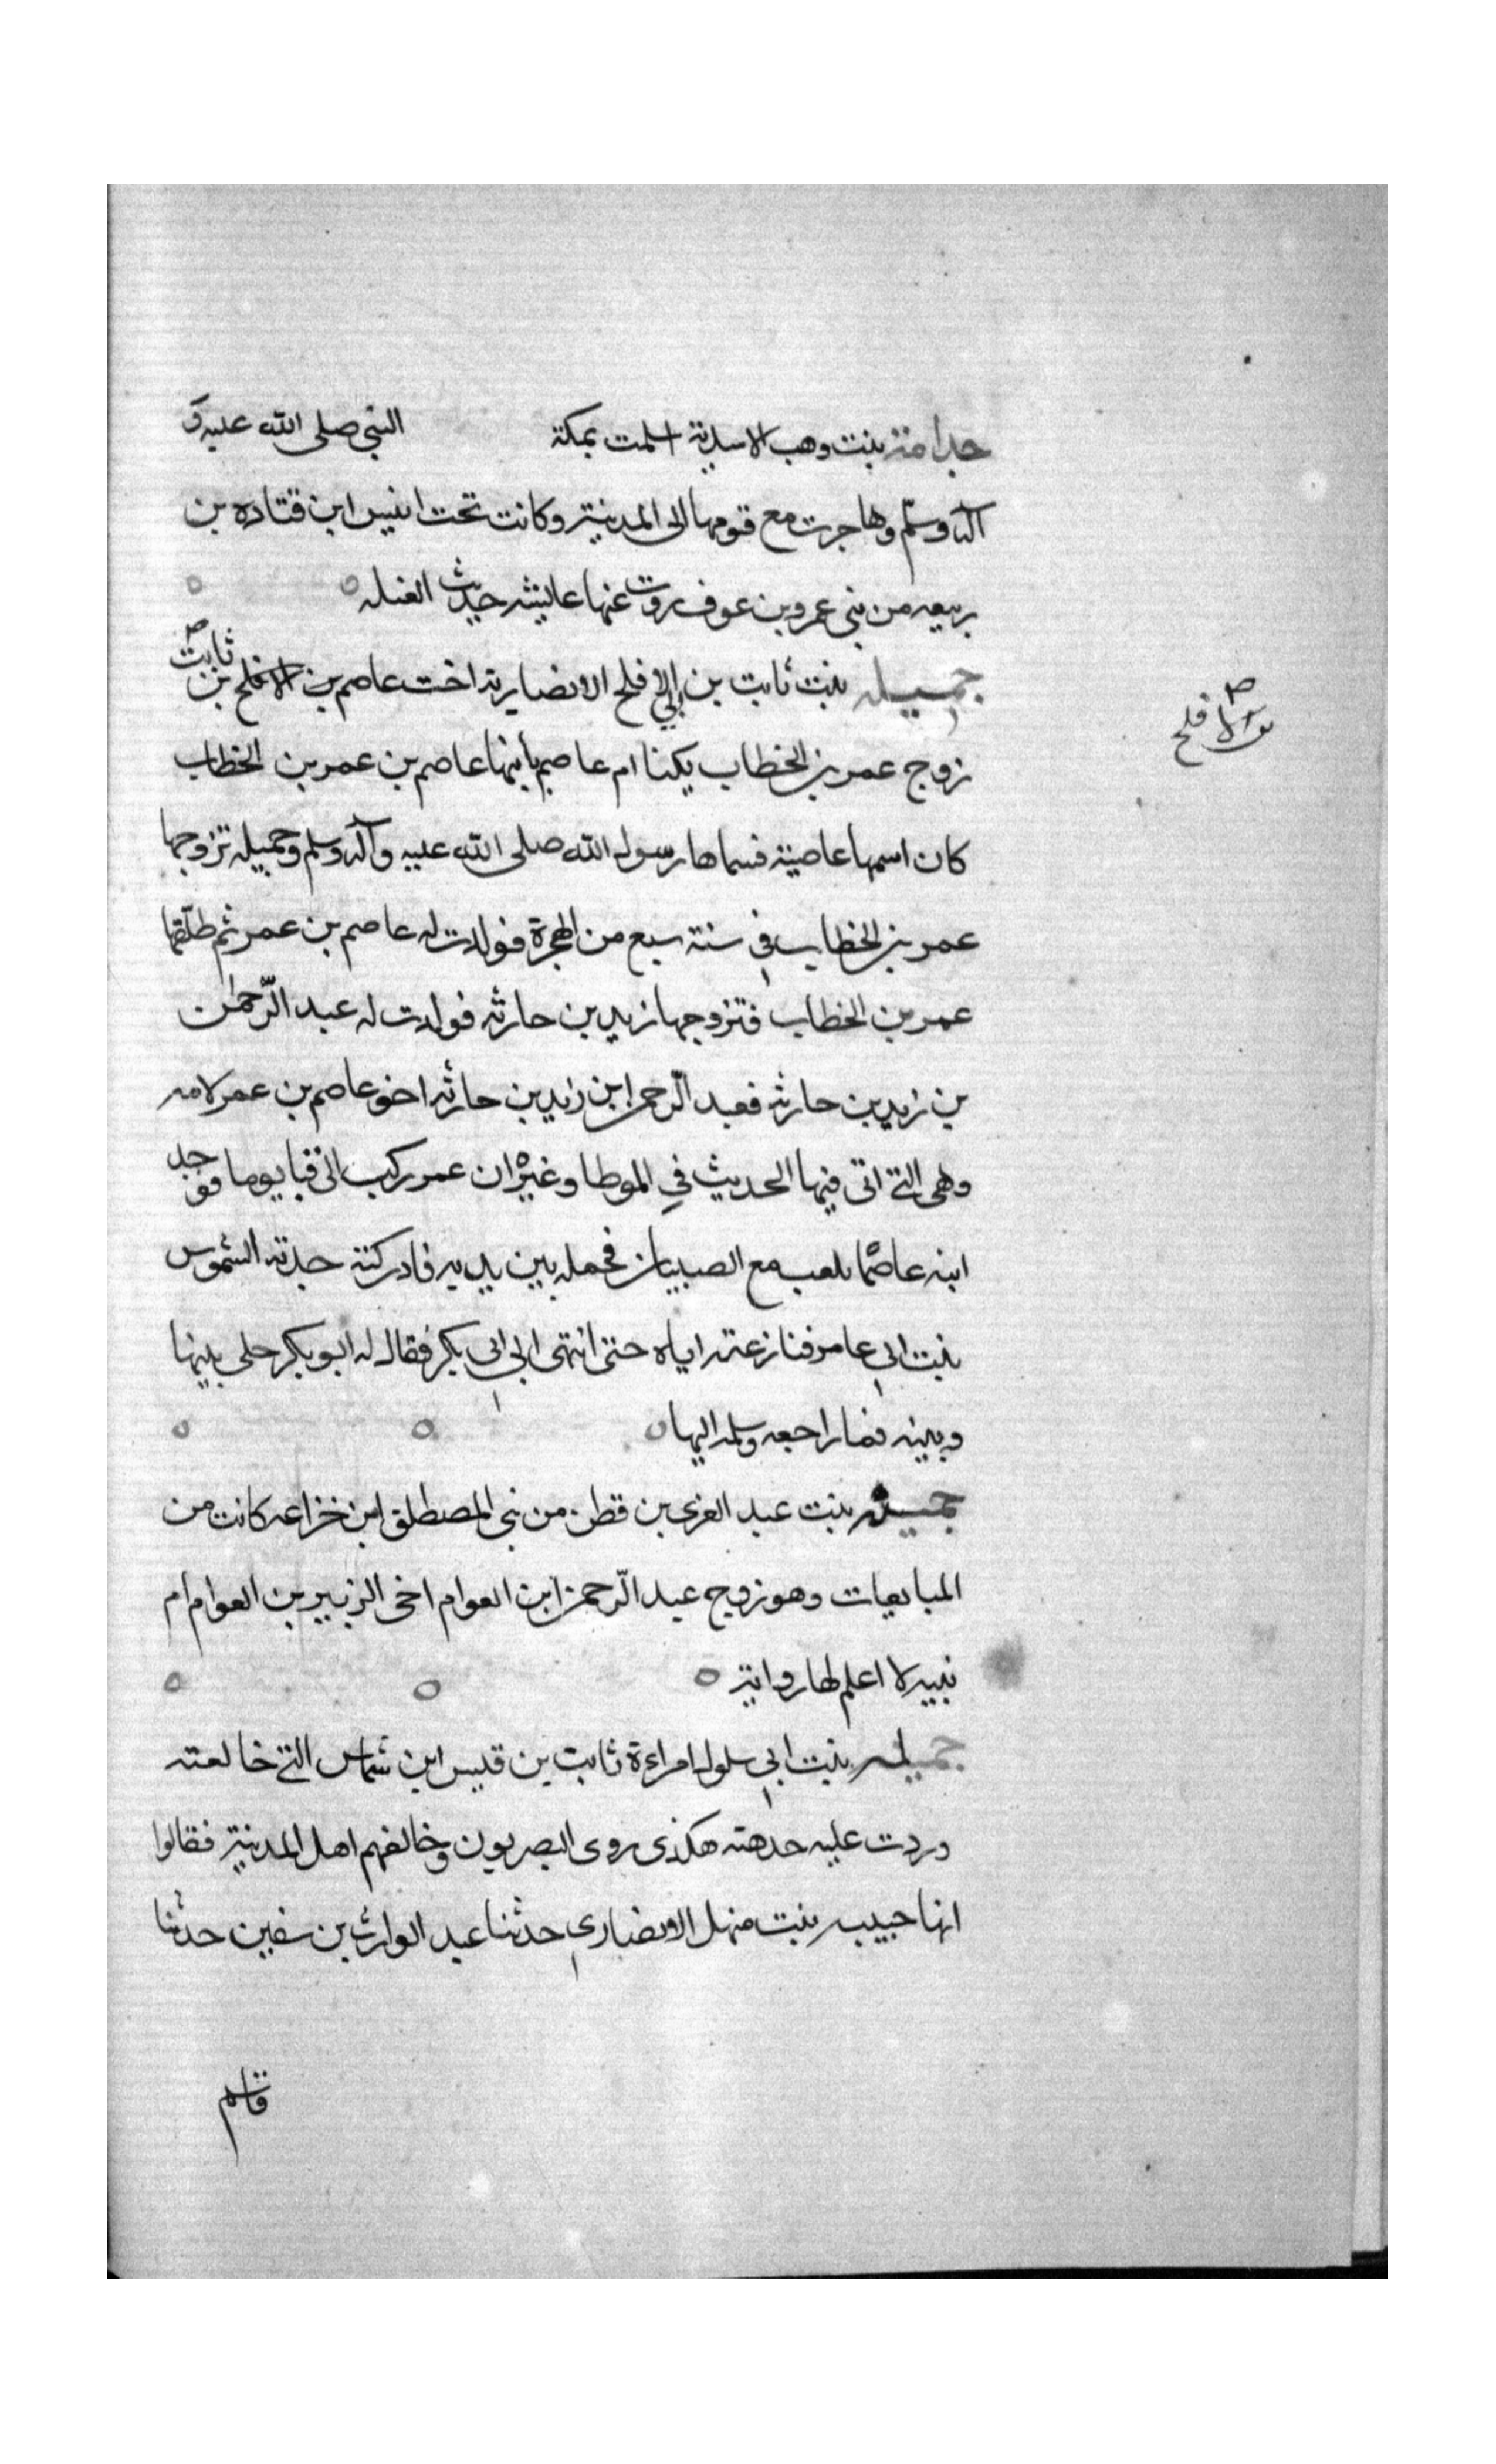 جدامة بنت وهب الاسدية اسلمت بمكة النبي صلى الله عليه و
آله وسلم وهاجرت مع قومها الى المدينة وكانت تحت انيس ابن قتاده بن
ربيعه من بني عمرو بن عوف روت عنها عايشه حديث الغيله
جميله بنت ثابت بن ابي الافلح الانصارية اخت عاصم بن ثابت بن الافلح
زوج عمر بن الخطاب يكنا ام عاصم بابنها عاصم بن عمر بن الخطاب
كان اسمها عاصية فسماها رسول الله صلى الله عليه وآله وسلم وجميله تزوجها
عمر بن الخطاب في سنة سبع من الهجرة فولدت له عاصم بن عمر ثم طلقها
عمر بن الخطاب فتزوجها زيد بن حارثه فولدت له عبد الرّحمٰن
بن زيد بن حارثه فعبد الرّحمن ابن زيد بن حارثه اخو عاصم بن عمر لامه
وهي التي اتى فيها الحديث في الموطا وغيره ان عمر ركب الى قبا يوما فوجد
ابنه عاصما يلعب مع الصبيان فحمله بين يديه فادركته جدته الشموس
بنت ابي عامر فنازعته اياه حتى انتهى الى ابي بكر فقال له ابو بكر خلي بينها
وبينه فما راجعه وسلمه اليها
جميله بنت عبد العزى بن قطن من بني المصطلق ابن خزاعه كانت من
المبايعات وهو زوج عبد الرّحمن ابن العوام اخي الزبير بن العوام ام
نبيه لا اعلم لها رواية
جميله بنت ابي سلول امراءة ثابت بن قيس ابن شماس التي خالعته
وردت عليه حدهته هكذى روى البصريون وخالفهم اهل المدينة فقالوا
انها حبيب بنت منهل الانصاري حدثنا عبد الوارث بن سفين حدثنا
قاسم